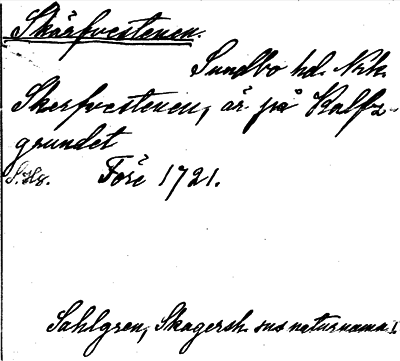 Skärfvestenen.
Sundbo hd. Nrk.
Skerfvestenen, är på Kalfz-
grundet
S. Hg. Före 1721.
Sahlgren, Skagersh. sns naturnamn I